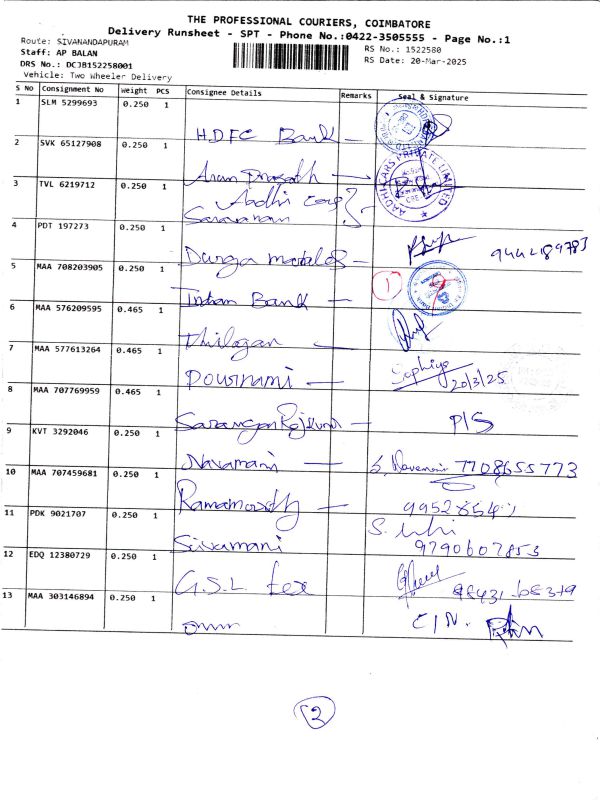 THE PROFESSIONAL COURIERS, COIMBATORE
Delivery Runsheet - SPT - Phone No.:0422-3505555 - Page No.:1
Route: SIVANANDAPURAM
Staff: AP BALAN
DRS No.: DCJB152258001
Vehicle: Two Wheeler Delivery
RS No.: 1522580
RS Date: 20-Mar-2025
S No Consignment No Weight PCS Consignee Details Remarks Seal & Signature
1 SLM 5299693 0.250 1 HDFC Bank
2 SVK 65127908 0.250 1 Arun Prasath
AADHI CARS PRIVATE LIMITED
3 TVL 6219712 0.250 1 Aadhi cars
Saravanan
4 PDT 197273 0.250 1 Durga 9442189783
5 MAA 708203905 0.250 1 Indian Bank 1
6 MAA 576209595 0.465 1
7 MAA 577613264 0.465 1 Pournami Sophiya
20/3/25
8 MAA 707769959 0.465 1 P/S
9 KVT 3292046 0.250 1 Navamani 7708655773
10 MAA 707459681 0.250 1 Ramamoorthy
11 PDK 9021707 0.250 1 Sivamani 9790607853
12 EDQ 12380729 0.250 1 G.S.L tex
13 MAA 303146894 0.250 1
2